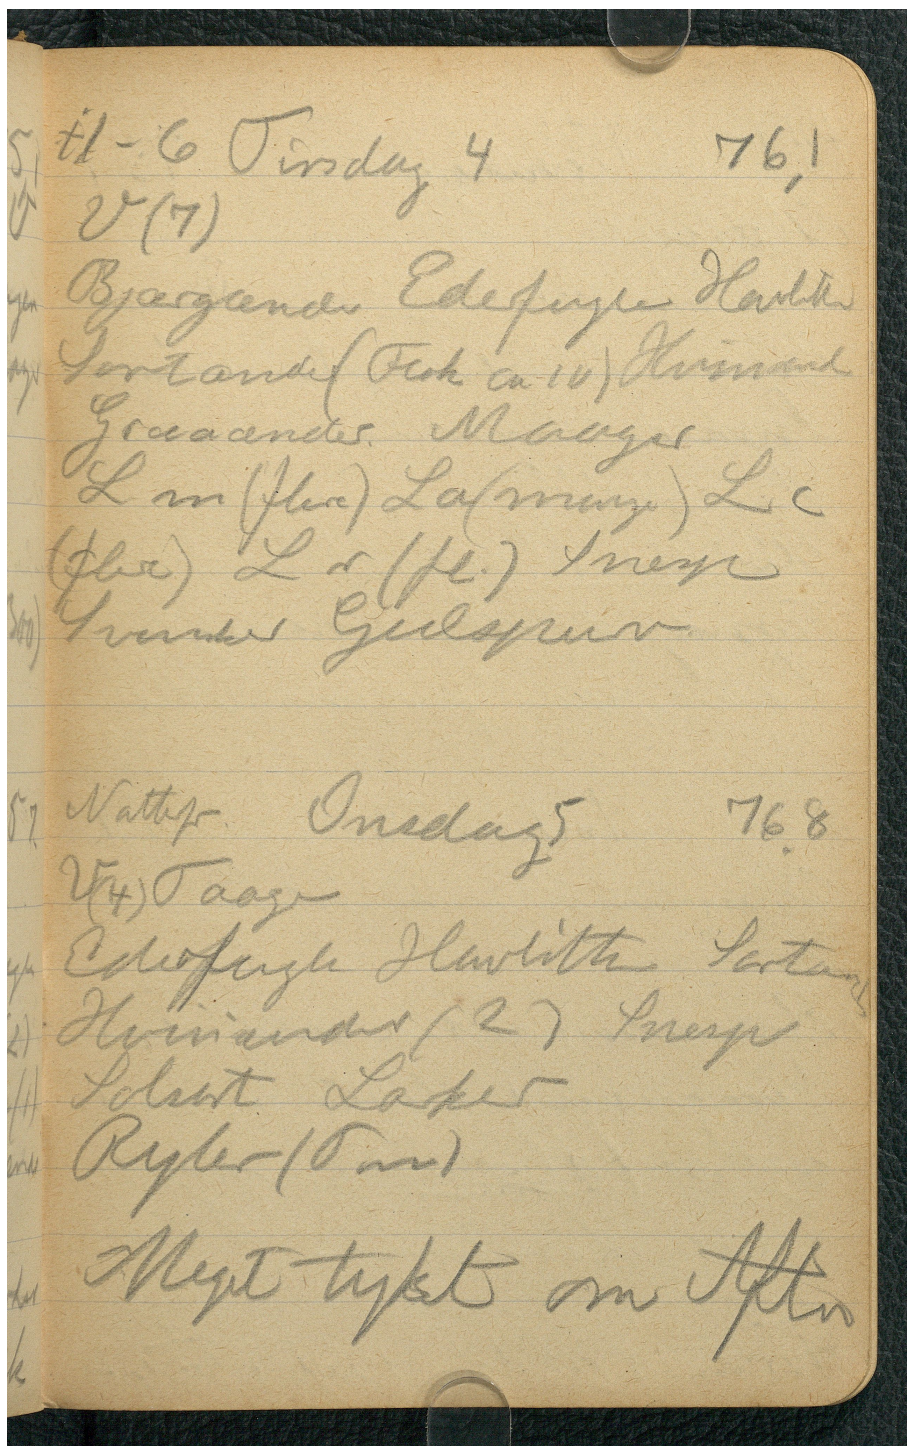 ÷1-6 Tirsdag 4 76,1
V (7)
Bjærgænder Ederfugle Havlitter
Sortænder (Flok ca 10) Hvinænd
Graaænder Maager
L m (flere) La (mange) L c
(flere) L r (fl.) Snesp
Svaner Gulspurv
Nattefr Onsdag 5 76.8
V(4) Taage
Ederfugle Havlitter Sortænd
Hvinænder (2) Snesp
Solsort Lærker
Ryler (T m)
Meget tykt om Aften